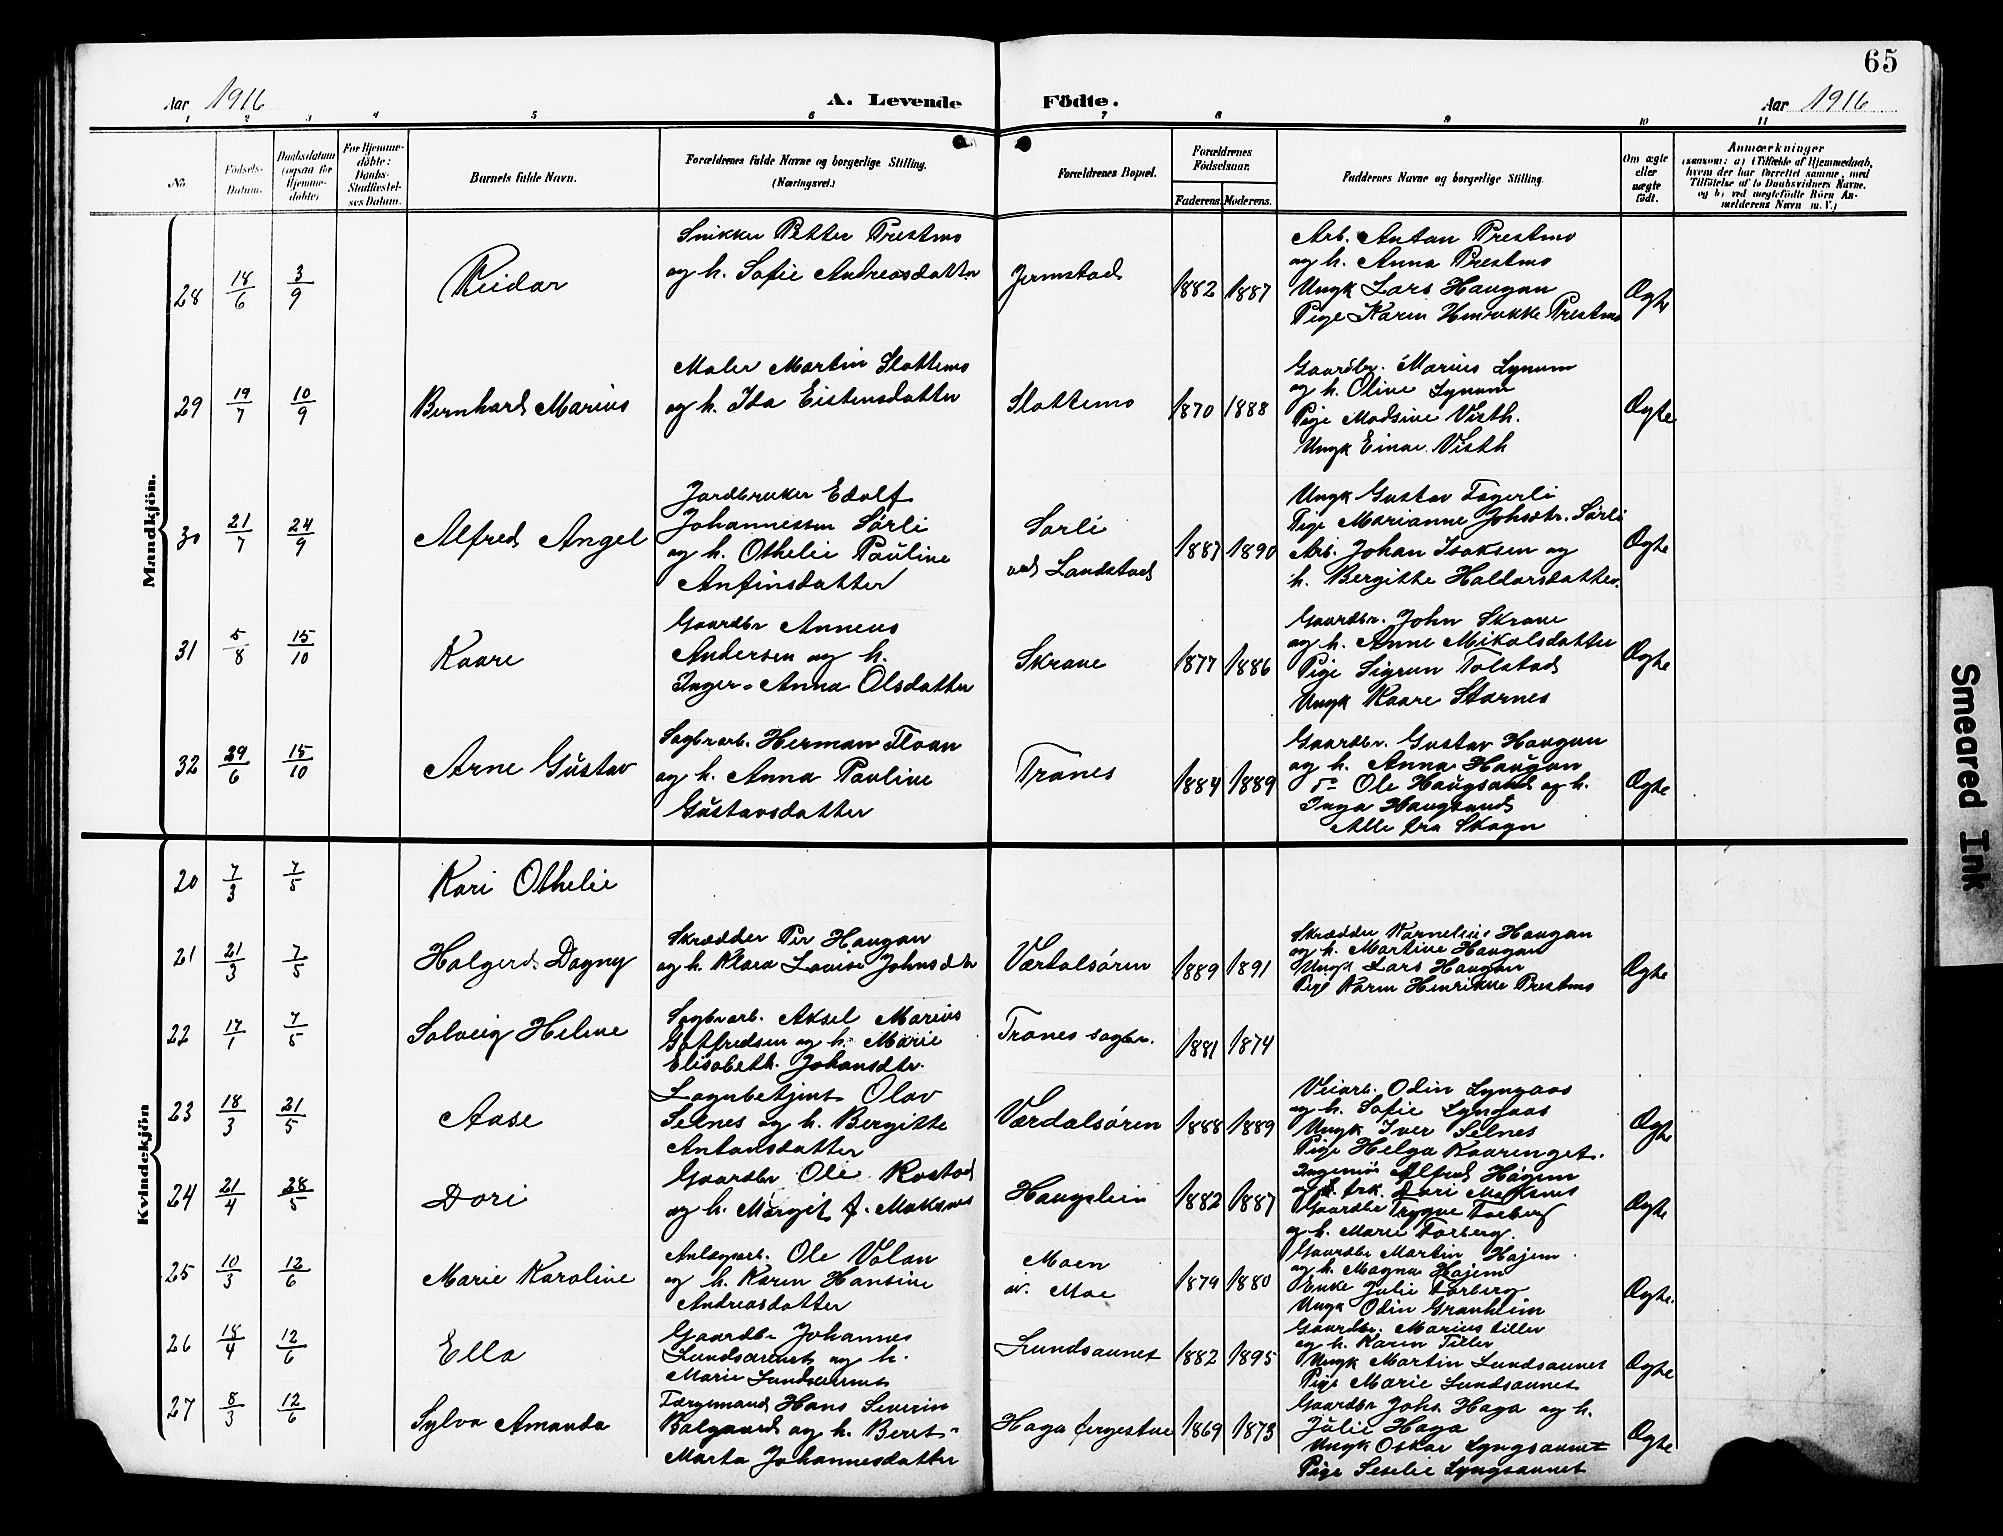 65
Aar 1916 A. Levende Födte. Aar 1916
1 2 3 4 5 6 7 8 9 10 11
No. Fødsels-Datum. Daabsdatum (ogsaa for Hjemme-døbte) For Hjemme-døbte: Daabs-Stadfæstel-ses Datum. Barnets fulde Navn. Forældrenes fulde Navne og borgerlige Stilling. (Næringsvei.) Forældrenes Bopæl. Forældrenes Fødselsaar. Faderens. Moderens. Faddernes Navne og borgerlige Stilling. Om ægte eller uægte født. Anmærkninger
(saasom: a) i Tilfælde af Hjemmedaab, hvem der har forrettet samme, med Tilføielse af to Daabsvidners Navne, og b) ved uægtefødte Börn An-melderens Navn m. V.)
Mandkjön.
28 18/6 3/9 Reidar
Snikker Petter Prestmo
og h. Sofie Andreasdatter
Jermstad 1882 1887
Arb. Anton Prestmo
og h. Anna Prestmo
Ungk Lars Haugan
Pige Karen Henrikke Prestmo
Ægte
29 19/7 10/9 Bernhard Marius
Maler Martin Slottemo
og h. Ida Eistensdatter
Slottemo 1870 1888
Gaardbr. Marius Lynum
og h. Oline Lynum
Pige Madsine Visth.
Ungk Einar Visth
Ægte
30 21/7 24/9 Alfred Angel
Jordbruker Edolf
Johannessen Sørli
og h. Othelie Pauline
Anfinsdatter
Sørli
ved Landstad
1887 1890
Ungk Gustav Fagerli
Pige Marianne Johsdtr. Sørli
Arb. Johan Isaksen og
h. Bergitte Haldorsdatter.
Ægte
31 5/8 15/10 Kaare
Gaardbr Anneus
Andersen og h.
Inger-Anna Olsdatter
Skrove 1877 1886
Gaardbr. John Skrove
og h. Anne Mikalsdatter
Pige Sigrun Tolstad
Ungk Kaare Stornes
Ægte
32 29/6 15/10 Arne Gustav
Sagbrarb. Herman Floan
og h. Anna Pauline
Gustavsdatter
Trones 1884 1889
Gaardbr. Gustav Haugan
og h. Anna Haugan
Ole Haugsand og h.
Inga Haugsand
Alle fra Skogn
Ægte
Kvindekjön
20 7/3 7/5 Kari Othelie
21 21/3 7/5 Holgerd Dagny
Skrædder Per Haugan
og h. Klara Lovise Johnsdtr
Værdalsøren 1889 1891
Skrædder Kornelius Haugan
og h. Martine Haugan
Ungk Lars Haugan
Pige Karen Henrikke Prestmo
Ægte
22 17/1 7/5 Solveig Helene
Sagbrarb. Aksel Marius
Gotfredsen og h. Marie
Elisabeth Johansdtr.
Trones sagbr. 1881 1874
23 18/3 21/5 Aase
Lagerbetjent Olav
Selnes og h. Bergitte
Antonsdatter
Værdalsøren 1888 1889
Veiarb. Odin Lyngaas
og h. Sofie Lyngaas
Ungk Iver Selnes
Pige Helga Kvarenget.
Ægte
24 21/4 28/5 Dori
Gaardbr Ole Rostad
og h. Margit f. Moksnes
Haugslein 1882 1887
Ingeniør Alfred Hagen
Dori Moksnes
Gaardbr Trygve Forberg
og h. Marie Forberg.
Ægte
25 10/3 12/6 Marie Karoline
Anlægsarb. Ole Volan
og h. Karen Hansine
Andreasdatter
Moen
v. Moe
1879 1880
Gaardbr Martin Hojem
og h. Magna Hojem
Enke Julie Forberg
Ungk Odin Granheim
Ægte.
26 18/4 12/6 Ella
Gaardbr Johannes
Lundsaunet og h.
Marie Lundsaunet
Lundsaunet 1882 1895
Gaardbr. Marius Tiller
og h. Karen Tiller
Ungk Martin Lundsaunet
Pige Marie Lundsaunet
Ægte
27 8/3 12/6 Sylva Amanda
Færgemand Hans Severin
Balgaard og h. Beret-
Marta Johannesdatter
Haga færgestue 1869 1873
Gaardbr Johs. Haga og h.
Julie Haga
Ungk Oskar Lyngsaunet
Pige Seselie Lyngsaunet
Ægte
Smeared Ink